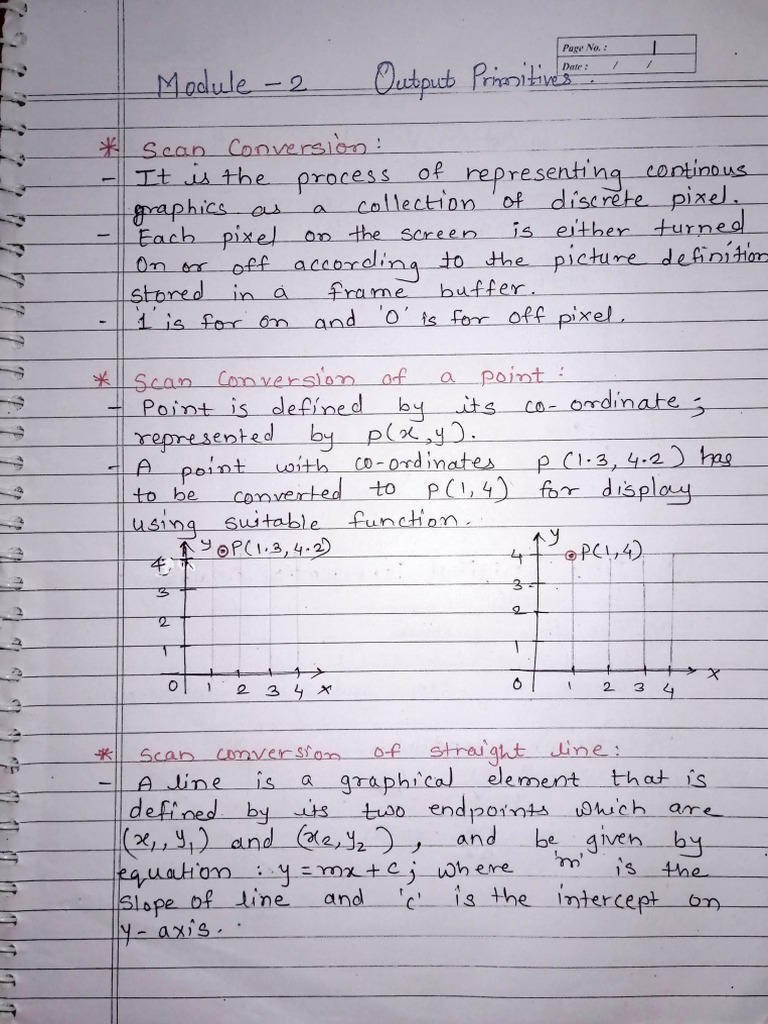 Page No. : 1
Date : / /
Module - 2 Output Primitives.
* Scan Conversion :
- It is the process of representing continous
graphics as a collection of discrete pixel.
- Each pixel on the screen is either turned
On or off according to the picture definition
stored in a frame buffer.
- '1' is for on and '0' is for off pixel.
* Scan Conversion of a point :
- Point is defined by its co-ordinate;
represented by p(x,y).
- A point with co-ordinates P(1.3, 4.2) has
to be converted to P(1,4) for display
using suitable function.
y P(1.3, 4.2)
4
3
2
1
0 1 2 3 4 x
y
4 P(1,4)
3
2
1
0 1 2 3 4 x
* Scan conversion of straight line :
- A line is a graphical element that is
defined by its two endpoints which are
(x₁, y₁) and (x₂, y₂), and be given by
equation : y = mx + c; where 'm' is the
slope of line and 'c' is the intercept on
y-axis.